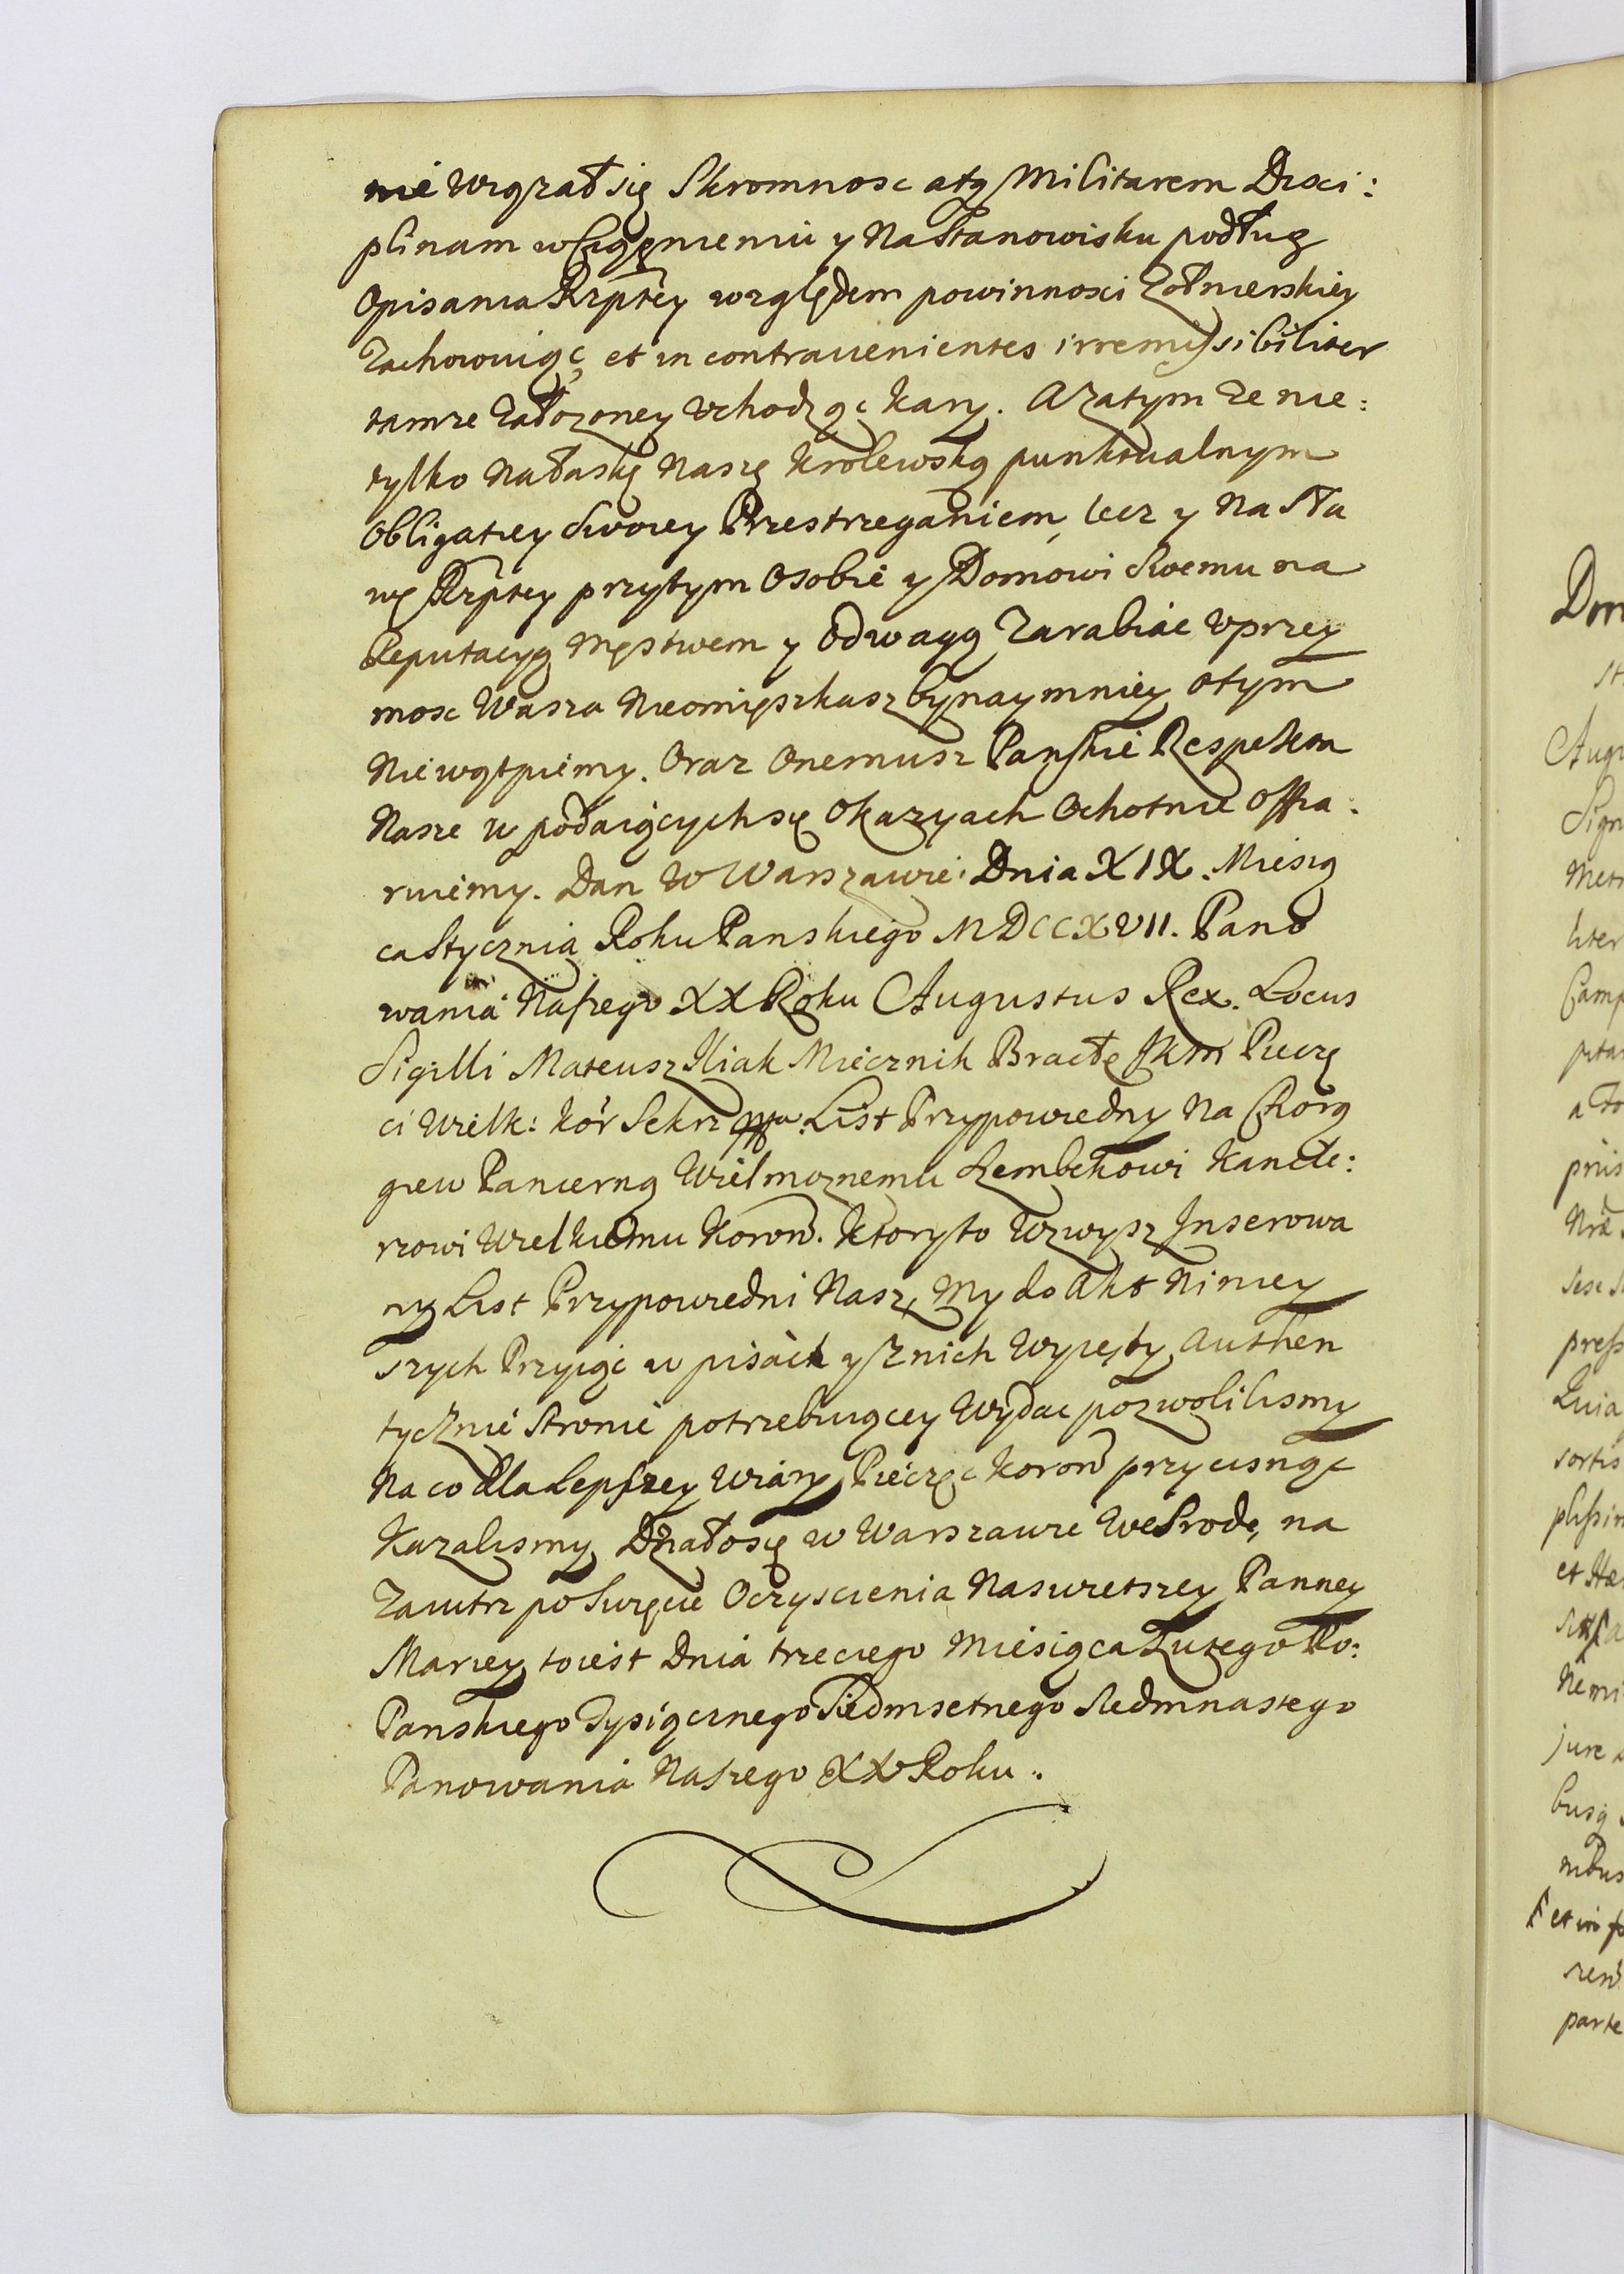 nie wrązał się Skromnosc atq Militarem Disci:
plinam w Ciągnieniu y Na Stanowisku podług
Opisania Rzptey względem powinnosci Zołnierskiey
Zachowuiąc, et in contravenientes irremissibiliter
tamze załozoney Uchodząc kary. A Zatym ze nie:
tylko Nałaskę Naszę Krolewską punktualnym
Obligatiey Swoiey Przestrzeganiem, lecz y Na Sła
wę Rzptey przytym Osobie y Domowi Swemu na
Reputacyą Męstwem y Odwagą Zarabiac Uprzey
mosc Wasza Nieomięszkasz bynaymniey otym
Nie wątpiemy. Oraz Onemusz Panskie Respekta
Nasze w podaiących się Okazyach Ochotnie Offia:
ruiemy. Dan W Warszawie Dnia XIX. Miesią
ca Stycznia Roku Panskiego MDCCXVII. Pano
wania Naszego XX Roku Augustus Rex. Locus
Sigilli Mateusz Iliak Miecznik Bracłē JKM Pieczę
ci Wielk: kor Sekrz List Przypowiedny Na Chorą
giew Pancerną Wielmoznemu Szembekowi Kancle:
rzowi Wielkiemu Koronn. Ktoryto Wzwysz Inserowa
ny List Przypowiedni Nasz, My do Akt Niniey
szych Przyiąc w pisać y Z nich Wypięty Authen
tycznie Stronie potrzebuiącey Wydac pozwolilismy
Na co dla Lepszey Wiary Pieczęc Koronn przycisnąc
Kazalismy Działosię w Warszawie We Srodę, na
Zaiutrz po Swięcie Oczyscienia Naswietszey Panney
Mariey, toiest Dnia trzeciego Miesiąca Lutego Ro:
Panskiego Tysiącznego Siedmsetnego Siedmnastego
Panowania Naszego XX Roku.